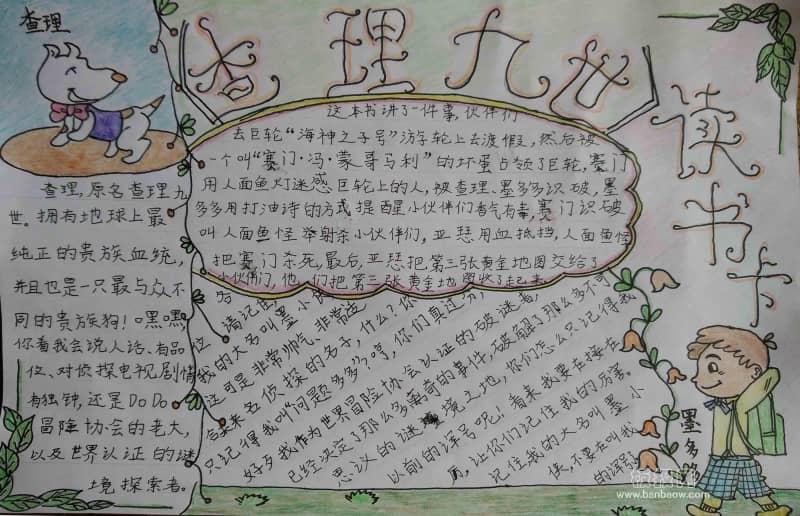 查理九世
读书卡
查理
查理,原名查理九
世。拥有地球上最
纯正的贵族血统,
并且也是一只最与众不
同的贵族狗!嘿嘿,
你看我会说人话、有品位
仪、对侦探电视剧情
有独钟,还是DoDo
冒险协会的老大,
以及世界认证的谜
境探索者。
这本书讲了一件事,伙伴们
去巨轮“海神之子号”游轮上去渡假,然后被
一个叫“赛门·冯·蒙哥马利”的坏蛋占领了巨轮,赛门
用人面鱼灯迷惑巨轮上的人,被查理、墨多多识破,墨
多多用打油诗的方式提醒小伙伴们香气有毒,赛门识破
叫人面鱼怪举射杀小伙伴们,亚瑟用血抵挡,人面鱼怪
把赛门杀死,最后,亚瑟把第三张黄金地图交给了
小伙伴们,他们把第三张黄金地图收了起来
请记住,
我的大名叫墨小侠
这可是非常帅气、非常
名侦探的名字,什么?你
只记得我叫“问题多多”?哼,你们真过分,
好歹我作为世界冒险协会认证的破谜者,
已经决定了那么多离奇的事件,破解了那么多不可
思议的谜境之地,你们怎么只记得我
以前的绰号呢!看来我要在接在
厉,让你们记住我的厉害,
记住我的大名叫墨小
侠,不要在叫我
的绰号
墨多多
www.banbaow.com